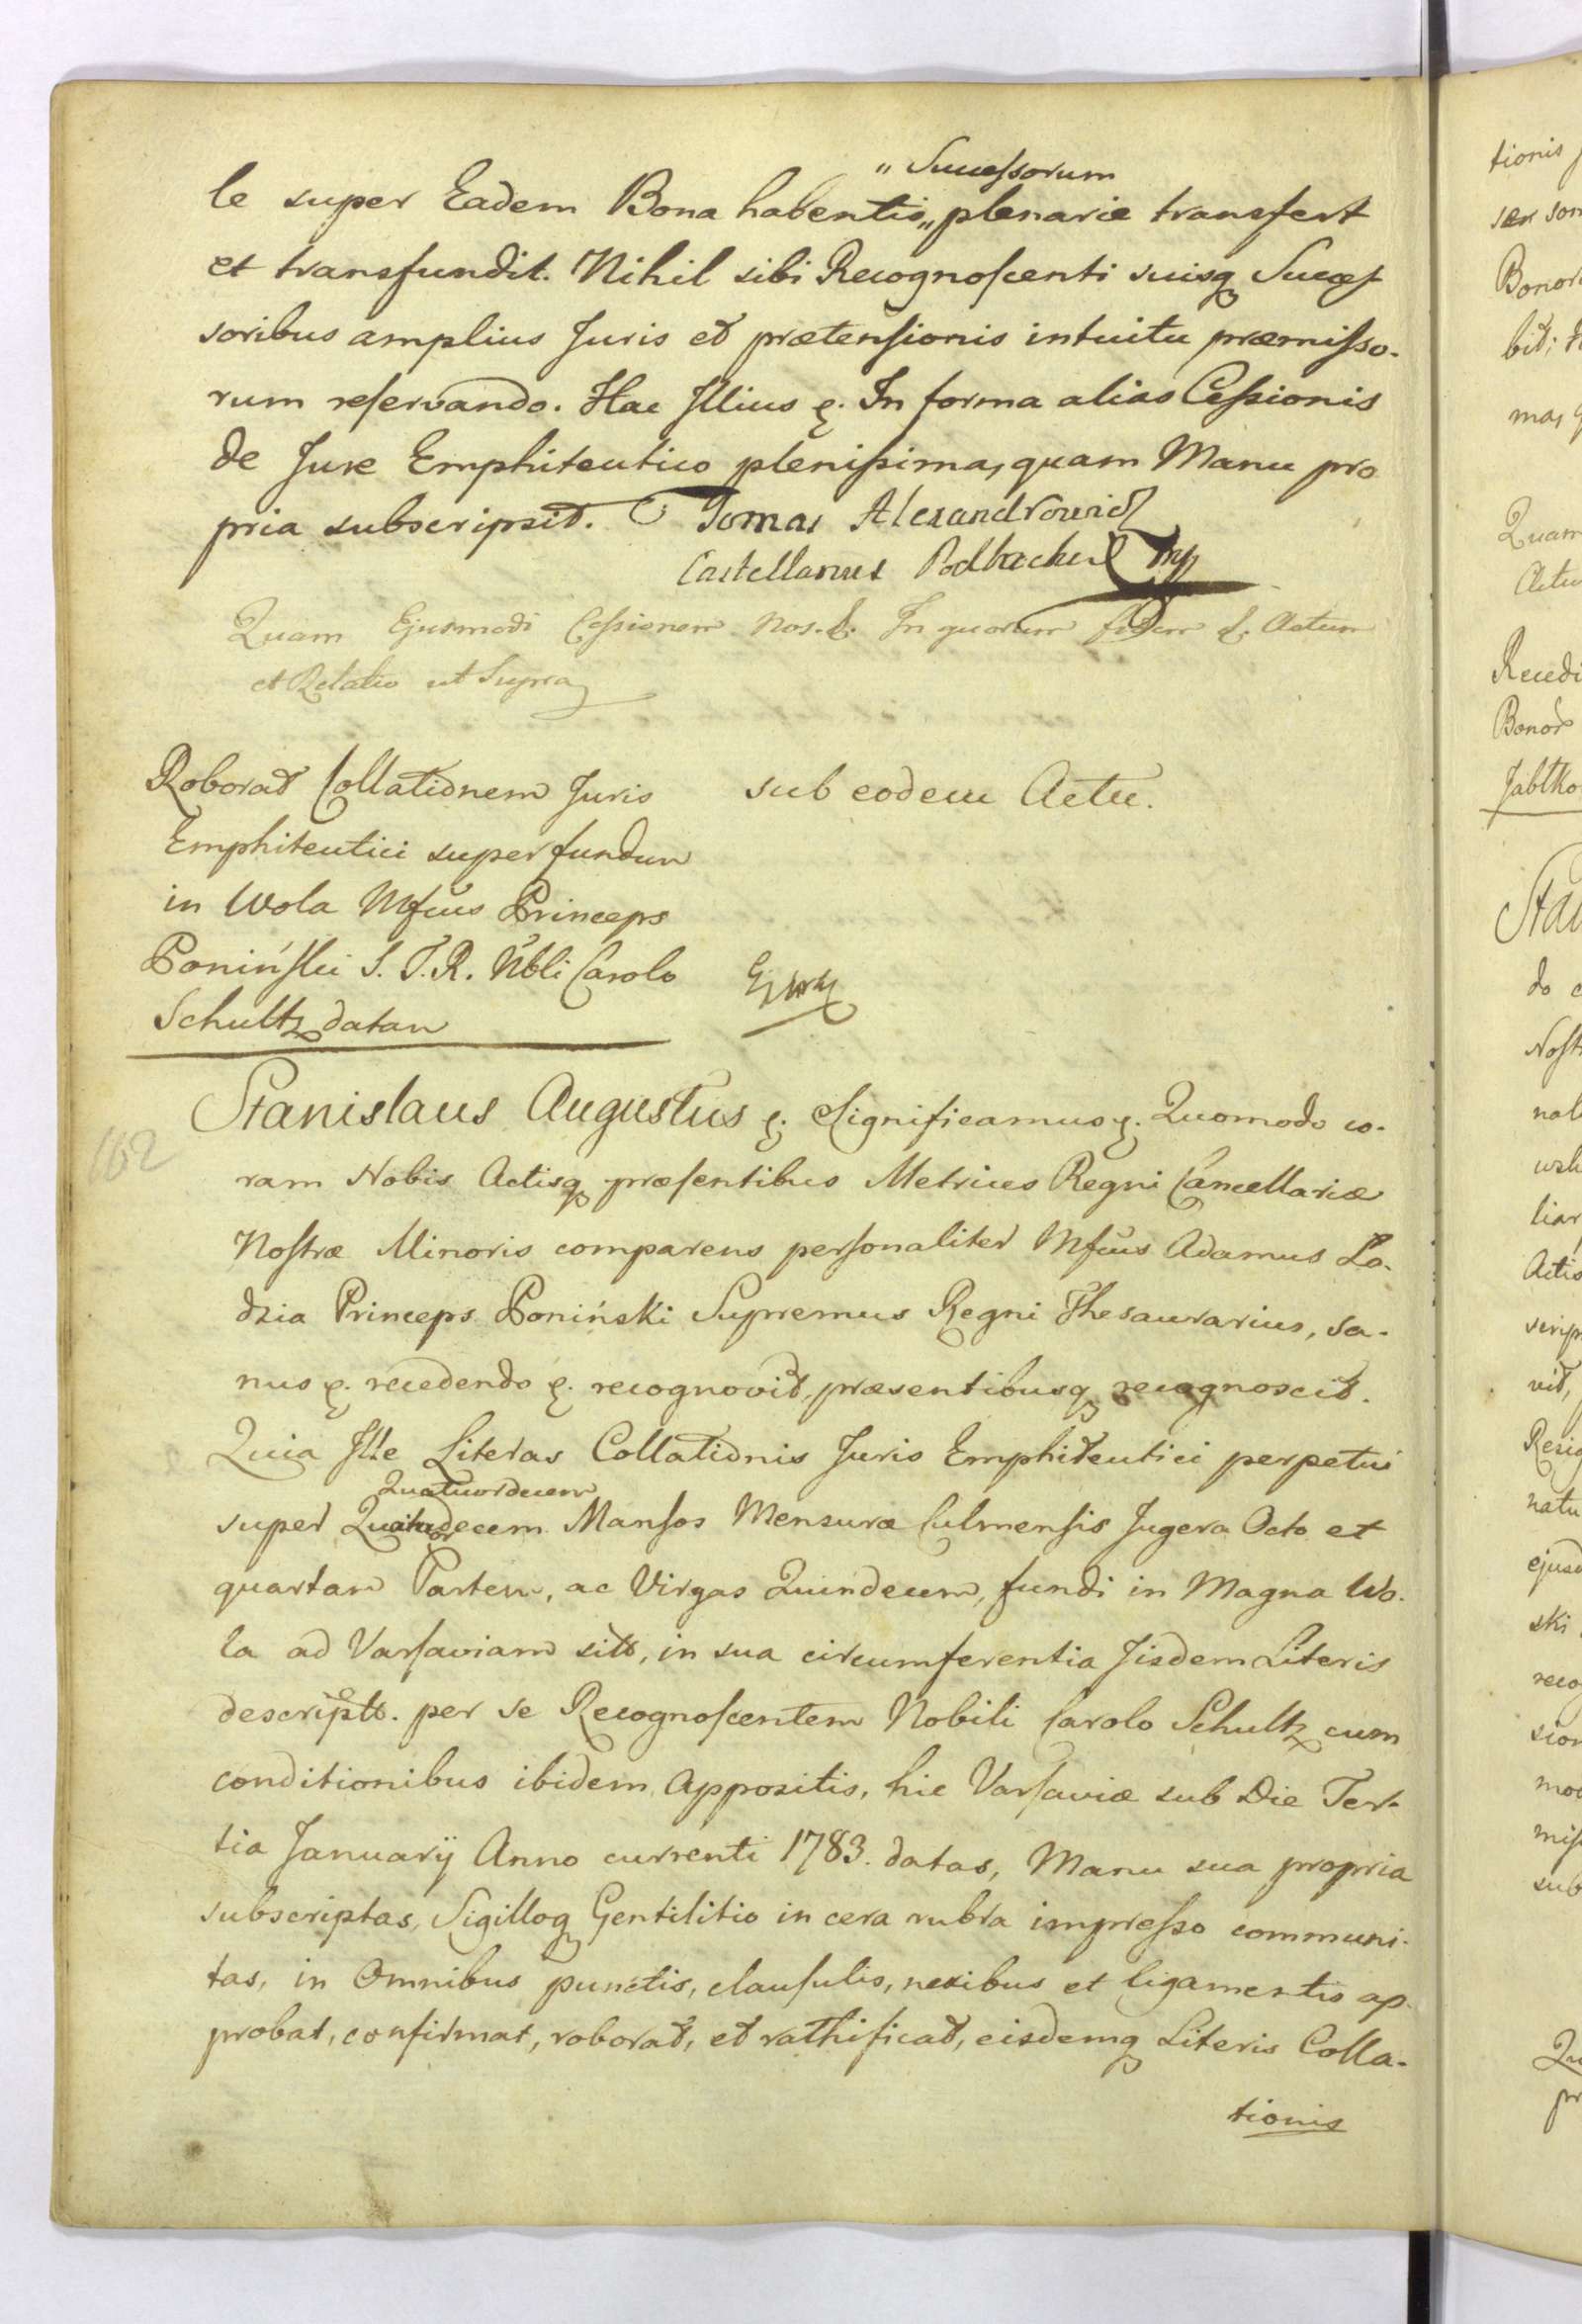 „ Successorum
le super Eadem Bona habentis„ plenarie transfert
et transfundit. Nihil sibi Recognoscenti suisq Succes-
soribus amplius Juris et prætensionis intuitu præmisso-
rum reservando. Hac Illius &. In forma alias Cessionis
de Jure Emphiteutico plenissima, quam Manu pro
pria subscripsit. Tomas Alexandrowicz
Castellanus Podlachiæ mp
Quam Ejusmodi Cessionem Nos. &. In quorum fidem &. Actum
et Relatio ut Supra
Roborat Collationem Juris
Emphiteutici super fundum
in Wola Mfcus Princeps
Poniński S. T. R. Nbli Carolo
Schultz datam
sub eodem Actu.
162
Stanislaus Augustus &. Significamus &. Quomodo co-
ram Nobis Actisq præsentibus Metrices Regni Cancellariæ
Nostræ Minoris comparens personaliter Mfcus Adamus Lo-
dzia Princeps Poniński Supremus Regni Thesaurarius, sa-
nus &. recedendo &. recognovit, præsentibusq recognoscit.
Quia Ille Literas Collationis Juris Emphiteutici perpetui
Quatuordecem
super decem Mansos Mensuræ Culmensis Jugera Octo et
quartam Partem, ac Virgas Quindecem, fundi in Magna Wo-
la ad Varsaviam sitt, in sua circumferentia Iisdem Literis
descriptt. per se Recognoscentem Nobili Carolo Schultz cum
conditionibus ibidem appositis, hic Varsaviæ sub Die Ter-
tia Januarij Anno currenti 1783. datas, Manu sua propria
subscriptas, Sigilloq Gentilitio in cera rubra impresso communi-
tas, in Omnibus punctis, clausulis, nexibus et ligamentis ap-
probat, confirmat, roborat, et rathificat, eisdemq Literis Colla-
tionis
tionis
Bonor
bit;
mas
Quam
Actu
Recedi
Bonor
Jabłko
Sta
do
Nost
nal
liar
Actis
scrip
vit,
Resig
natu
ejusd
ski
reco
sion
mod
mis
sub
Qu
pr